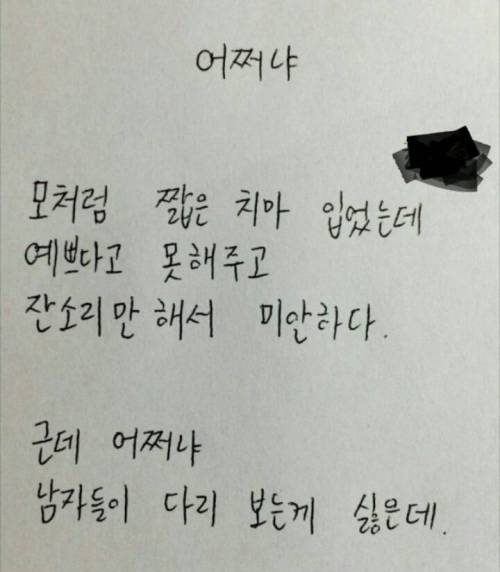 어쩌냐
모처럼 짧은 치마 입었는데
예쁘다고 못해주고
잔소리만 해서 미안하다.
근데 어쩌냐
남자들이 다리 보는게 싫은데.